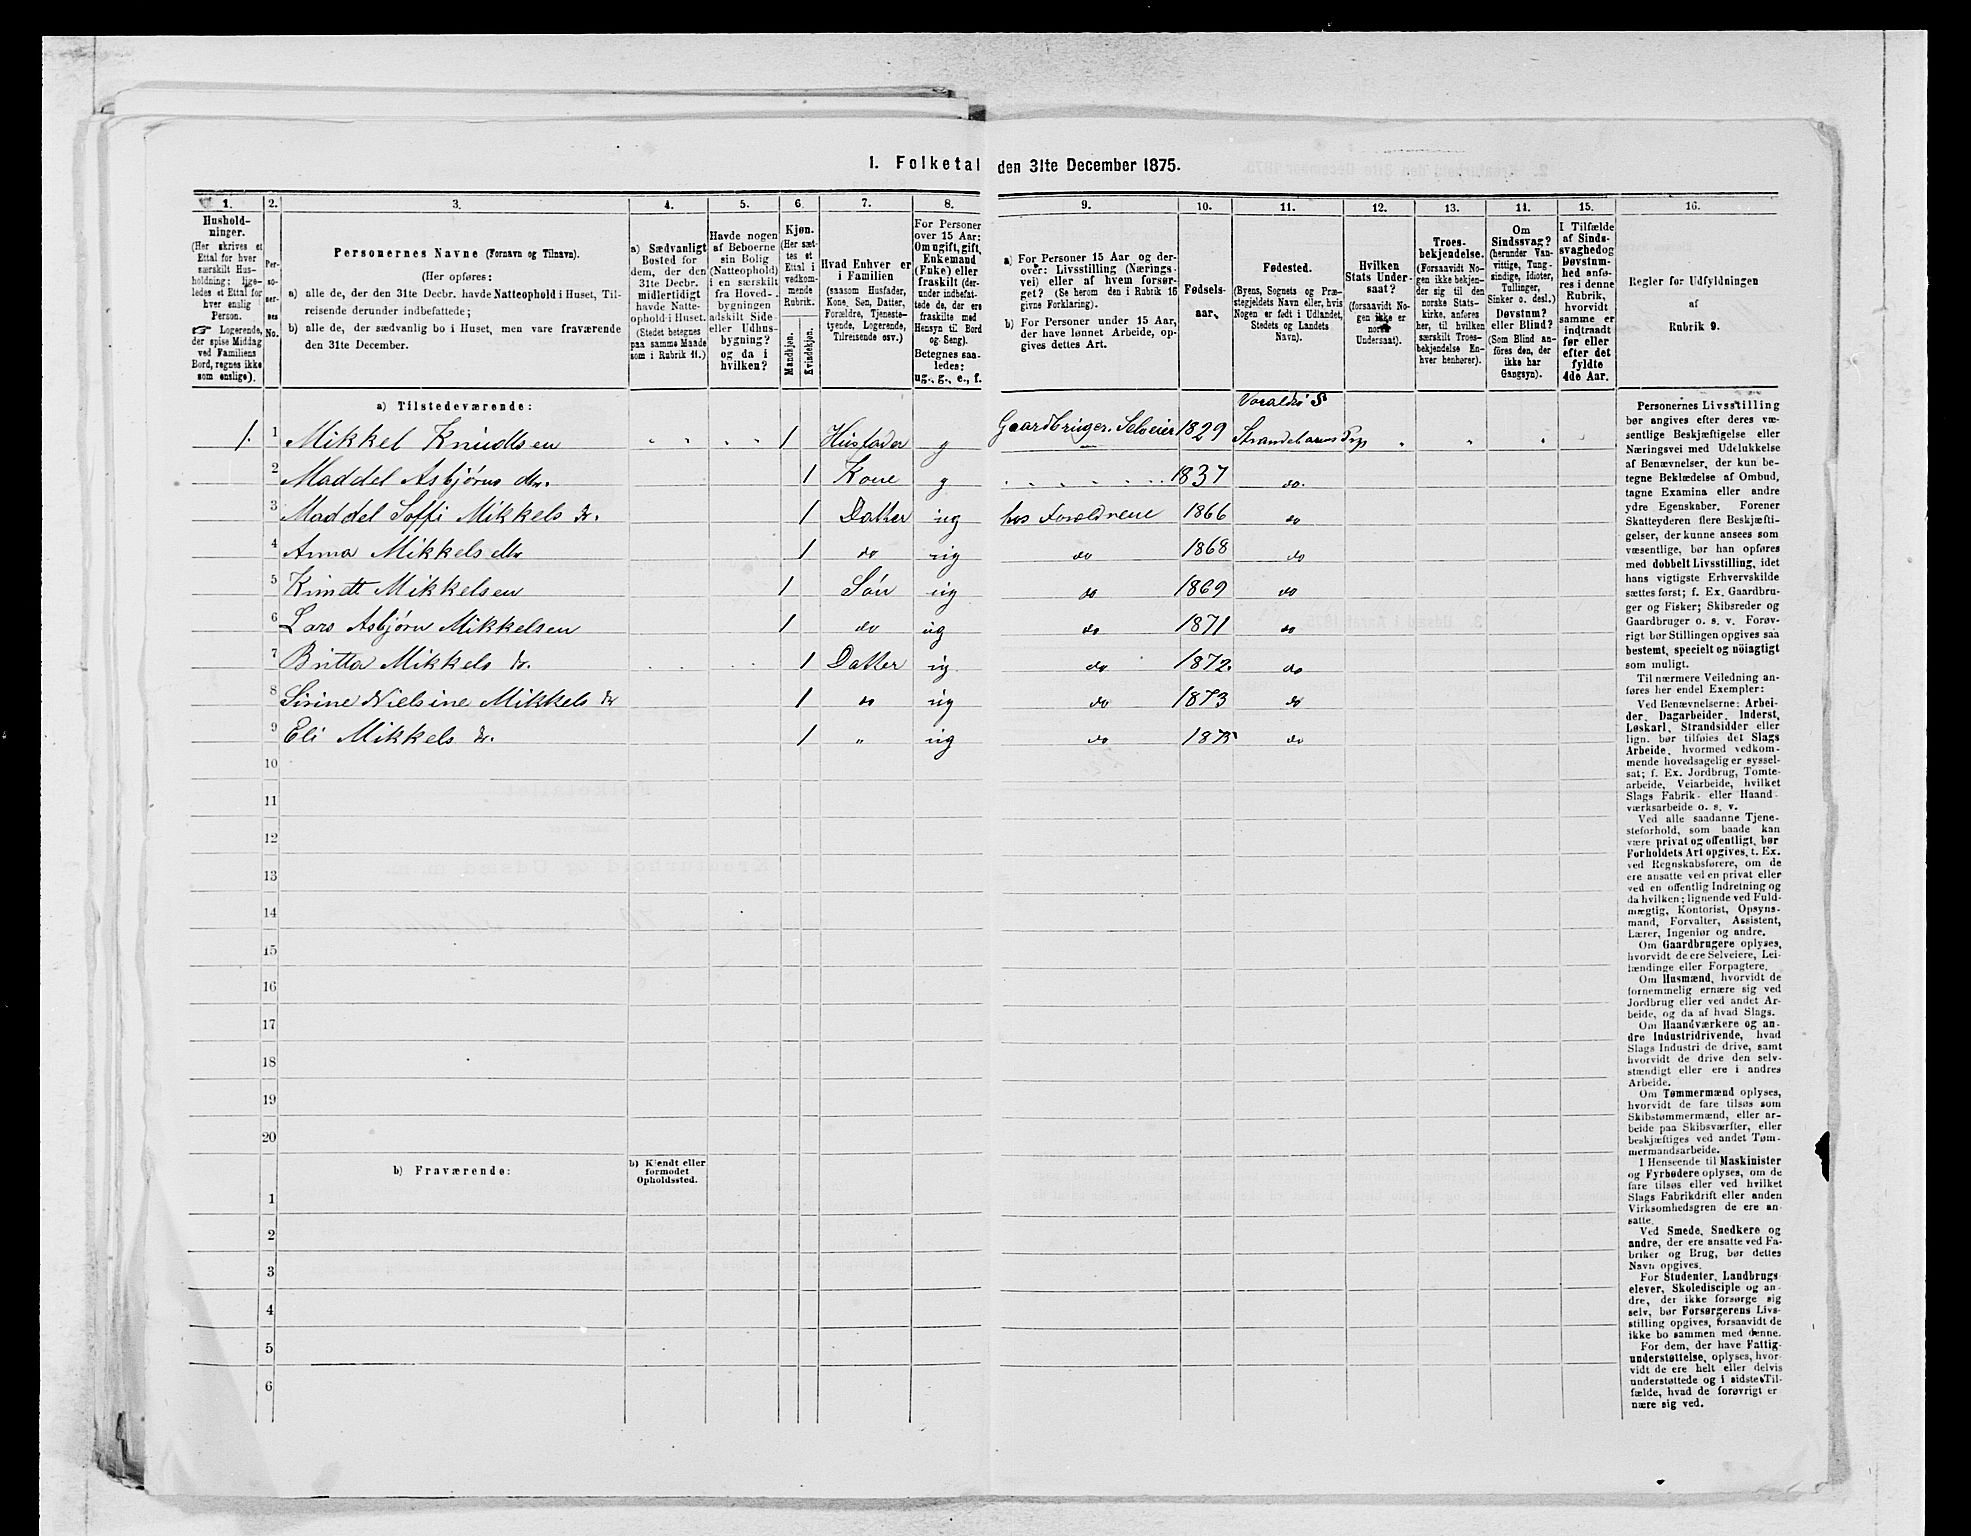 1. Folketal den 31te December 1875.
1. 2. 3. 4. 5. 6. 7. 8. 9. 10. 11. 12. 13. 14. 15. 16.
Hushold-
ninger.
(Her skrives et
Ettal for hver
særskilt Hus-
holdning; lige-
ledes et Ettal for
hver enslig
Person.
☞ Logerende,
der spise Middag
ved Familiens
Bord, regnes ikke
som enslige).
Per-
so-
ner-
nes
No.
Personernes Navne (Fornavn og Tilnavn).
(Her opføres:
a) alle de, der den 31te Decbr. havde Natteophold i Huset, Til-
reisende derunder indbefattede;
b) alle de, der sædvanlig bo i Huset, men vare fraværende
den 31te December.
a) Sædvanligt
Bosted for
dem, der den
31te Decbr.
midlertidigt
havde Natte-
ophold i Huset.
(Stedet betegnes
paa samme Maade
som i Rubrik 11.)
Havde nogen
af Beboerne
sin Bolig
(Natteophold)
i en særskilt
fra Hoved-
bygningen
adskilt Side-
eller Udhus-
bygning?
og da i
hvilken?
Kjøn.
(Her sæt-
tes et
Ettal i
vedkom-
mende
Rubrik.
Mandkjøn.
Kvindekjøn.
Hvad Enhver er
i Familien
(saasom Husfader,
Kone, Søn, Datter,
Forældre, Tjeneste-
tyende, Logerende,
Tilreisende osv.)
For Personer
over 15 Aar:
Om ugift, gift,
Enkemand
(Enke) eller
fraskilt (der-
under indbefat-
tede de, der ere
fraskilte med
Hensyn til Bord
og Seng).
Betegnes saa-
ledes:
ug., g., e., f.
a) For Personer 15 Aar og der-
over: Livsstilling (Nærings-
vei) eller af hvem forsør-
get? (Se herom den i Rubrik 16
givne Forklaring).
b) For Personer under 15 Aar,
der have lønnet Arbeide, op-
gives dettes Art.
Fødsels-
aar.
Fødested.
(Byens, Sognets og Præ-
stegjeldets Navn eller, hvis
Nogen er født i Udlandet,
Stedets og Landets
Navn).
Hvilken
Stats Under-
saat?
(forsaavidt No-
gen ikke er
norsk
Undersaat).
Troes-
bekjendelse.
(Forsaavidt No-
gen ikke bekjen-
der sig til den
norske Stats-
kirke, anføres
her, til hvilken
særskilt Troes-
bekjendelse En-
hver henhører).
Om
Sindssvag?
(herunder Van-
vittige, Tung-
sindige, Idioter,
Tullinger,
Sinker o. desl.)
Døvstum?
eller Blind?
(Som Blind an-
føres den, der
ikke har
Gangsyn).
I Tilfælde
af Sinds-
svaghed og
Døvstum-
hed anfø-
res i denne
Rubrik,
hvorvidt
samme er
indtraadt
før eller
efter det
fyldte
4de Aar.
Regler for Udfyldningen
af
Rubrik 9.
a) Tilstedeværende:
Varaldsø S
1. 1 Mikkel Knudtsen 1 Husfader g Gaardbruger. Selveier 1829 Strandebarms Prgj
2 Maddel Asbjørns dtr. 1 Kone g 1837 do.
3 Maddel Soffi Mikkels dr. 1 Datter ug hos Forældrene 1866 do
4 Anna Mikkels dtr 1 do ug do 1868 do
5 Knudt Mikkelsen 1 Søn ug do 1869 do
6 Lars Asbjørn Mikkelsen 1 do ug do 1871 do
7 Britta Mikkels dr. 1 Datter ug. do 1872. do
8 Sirine Nielsine Mikkels dr 1 do ug do 1873 do
9 Eli Mikkels dr. 1 " ug do 1875 do
10
11
12
13
14
15
16
17
18
19
20
b) Fraværende:
b) Kjendt eller
formodet
Opholdssted.
1
2
3
4
5
6
Personernes Livsstilling
bør angives efter deres væ-
sentlige Beskjæftigelse eller
Næringsvei med Udelukkelse
af Benævnelser, der kun be-
tegne Beklædelse af Ombud,
tagne Examina eller andre
ydre Egenskaber. Forener
Skatteyderen flere Beskjæfti-
gelser, der kunne ansees som
væsentlige, bør han opføres
med dobbelt Livsstilling, idet
hans vigtigste Erhvervskilde
sættes først; f. Ex. Gaardbru-
ger og Fisker; Skibsreder og
Gaardbruger o. s. v. Forøv-
rigt bør Stillingen opgives saa
bestemt, specielt og nöiagtigt
som muligt.
Til nærmere Veiledning an-
føres her endel Exempler:
Ved Benævnelserne: Arbei-
der, Dagarbeider, Inderst,
Løskarl, Strandsidder eller
lign. bør tilføies det Slags
Arbeide, hvormed vedkom-
mende hovedsagelig er syssel-
sat; f. Ex. Jordbrug, Tomte-
arbeide, Veiarbeide, hvilket
Slags Fabrik- eller Haand-
værksarbeide o. s. v.
Ved alle saadanne Tjene-
steforhold, som baade kan
være privat og offentligt, bør
Forholdets Art opgives, t. Ex.
ved Regnskabsførere, om de
ere ansatte ved en privat eller
ved en offentlig Indretning og
da hvilken; lignende ved Fuld-
mægtig, Kontorist, Opsyns-
mand, Forvalter, Assistent,
Lærer, Ingeniør og andre.
Om Gaardbrugere oplyses,
hvorvidt de ere Selveiere, Lei-
lændinge eller Forpagtere.
Om Husmænd, hvorvidt de
fornemmelig ernære sig ved
Jordbrug eller ved andet Ar-
beide, og da af hvad Slags.
Om Haandværkere og an-
dre Industridrivende, hvad
Slags Industri de drive, samt
hvorvidt de drive den selv-
stændigt eller ere i andres
Arbeide.
Om Tømmermænd oplyses,
hvorvidt de fare tilsøs som
Skibstømmermænd, eller ar-
beide paa Skibsværfter, eller
beskjæftiges ved andet Tøm-
mermandsarbeide.
I Henseende til Maskinister
og Fyrbødere oplyses, om de
fare tilsøs eller ved hvilket
Slags Fabrikdrift eller anden
Virksomhedsgren de ere an-
satte.
Ved Smede, Snedkere og
andre, der ere ansatte ved Fa-
briker og Brug, bør dettes
Navn opgives.
For Studenter, Landbrugs-
elever, Skoledisciple og an-
dre, der ikke forsørge sig
selv, bør Forsørgerens Livs-
stilling opgives, forsaavidt de
ikke bo sammen med denne.
For dem, der have Fattig-
understøttelse, oplyses, hvor-
vidt de ere helt eller delvis
understøttede og i sidste Til-
fælde, hvad de forøvrigt er-
nære sig ved.